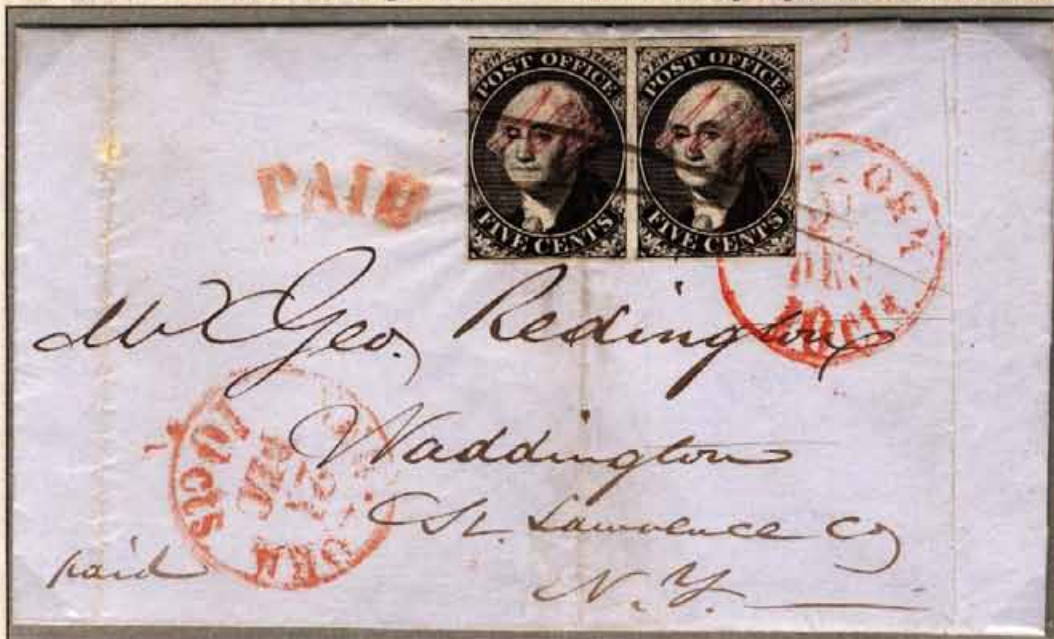 POST OFFICE
FIVE CENTS
POST OFFICE
FIVE CENTS
PAID
YORK
10 cts
Mr Geo. Redington
Waddington
St. Lawrence Co
N.Y.
paid
YORK
10 cts